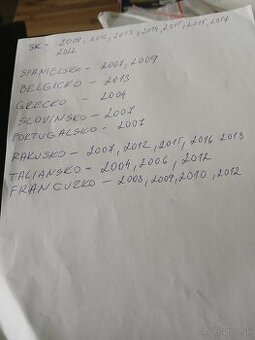 SK - 2009, 2012, 2013, 2014, 2015, 2015, 2017
2022
SPANIELSKO - 2007, 2009
BELGICKO - 2013
GRECKO - 2004
SLOVINSKO - 2007
PORTUGALSKO - 2007
RAKUSKO - 2007, 2012, 2015, 2016 2013
TALIANSKO - 2004, 2006, 2012
FRANCUZKO - 2008, 2009, 2010, 2012
bazos.sk